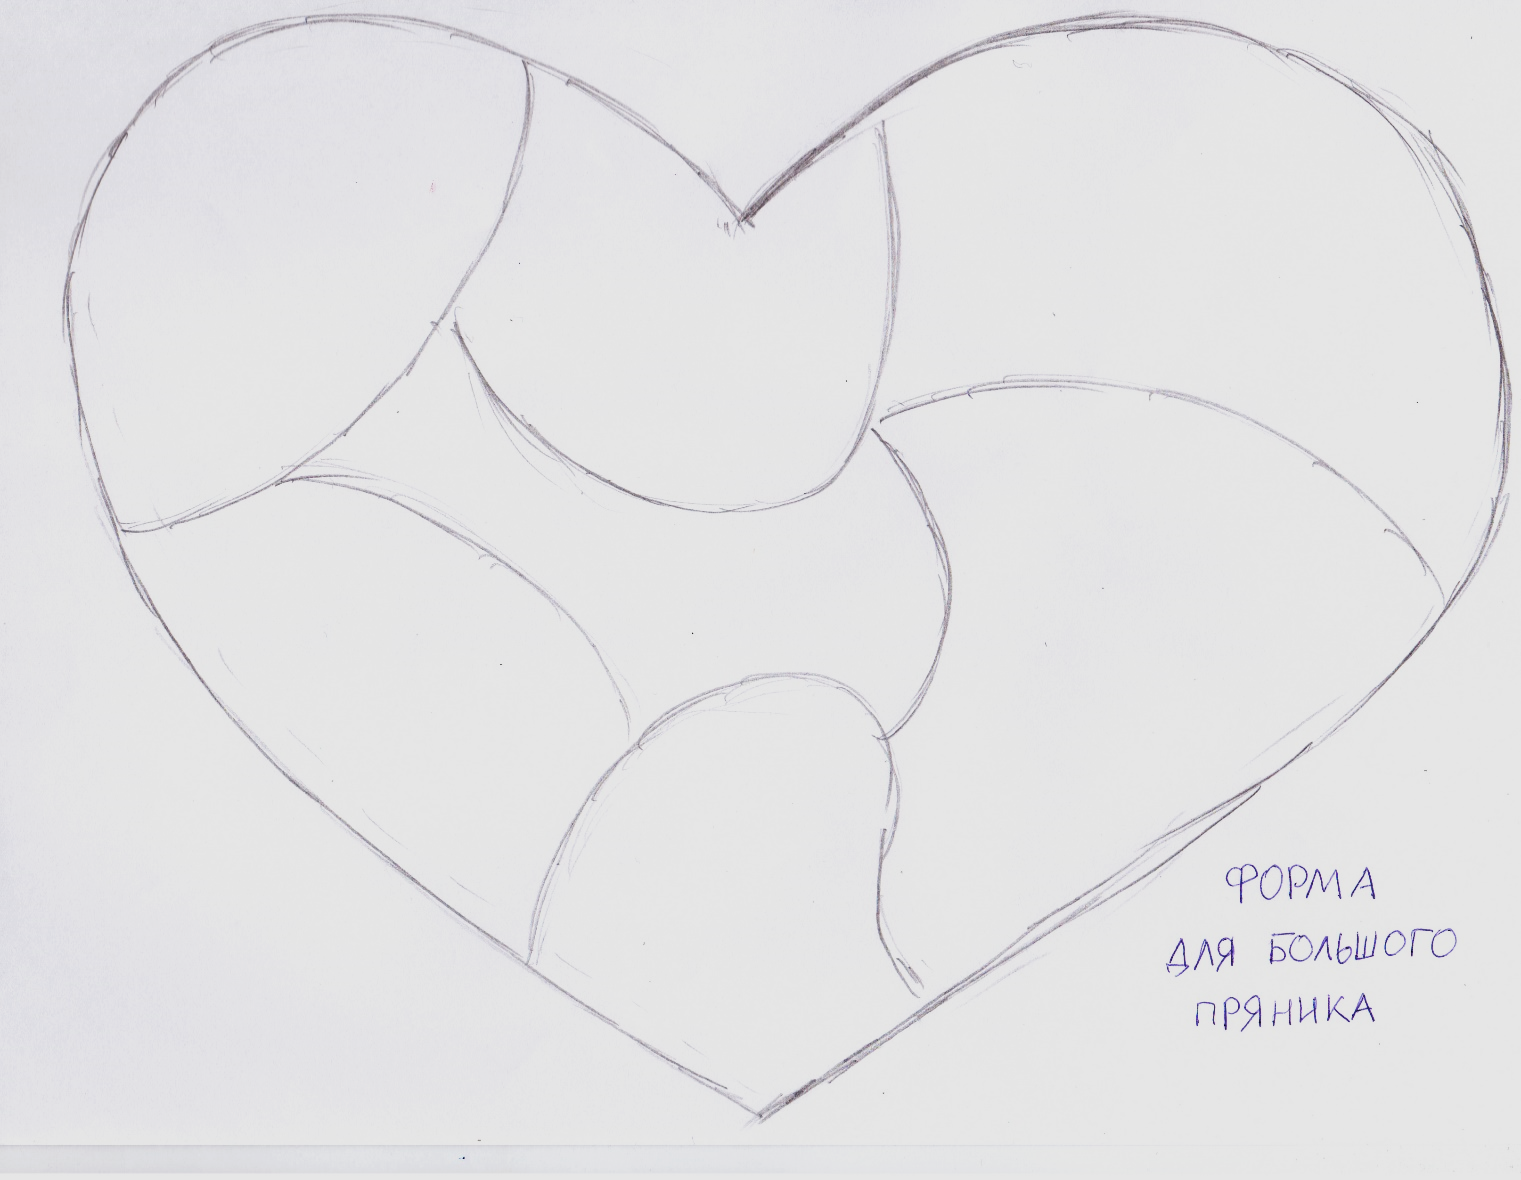 ФОРМА
ДЛЯ БОЛЬШОГО
ПРЯНИКА